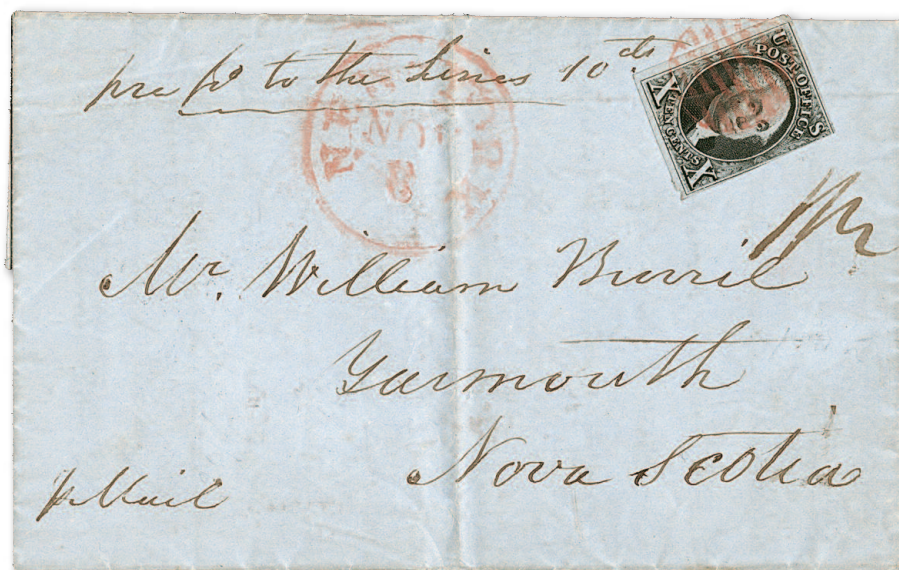 pre pd to the Lines 10 cts
NEW YORK
NOV
8
U S
POST OFFICE
X X
TEN CENTS
Mr. William Burril
Yarmouth
Nova Scotia
p Mail